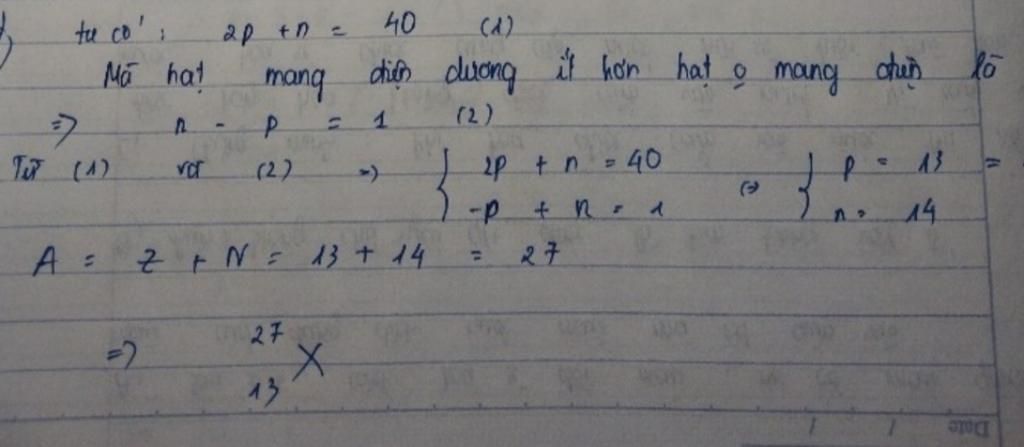 ta có: 2p + n = 40 (1)
Mà hạt mang điện dương ít hơn hạt o mang điện là
=> n - p = 1 (2)
Từ (1) và (2) => { 2p + n = 40 <=> { p = 13 =
-p + n = 1 n = 14
A = Z + N = 13 + 14 = 27
=> 27 X
13
Date / /